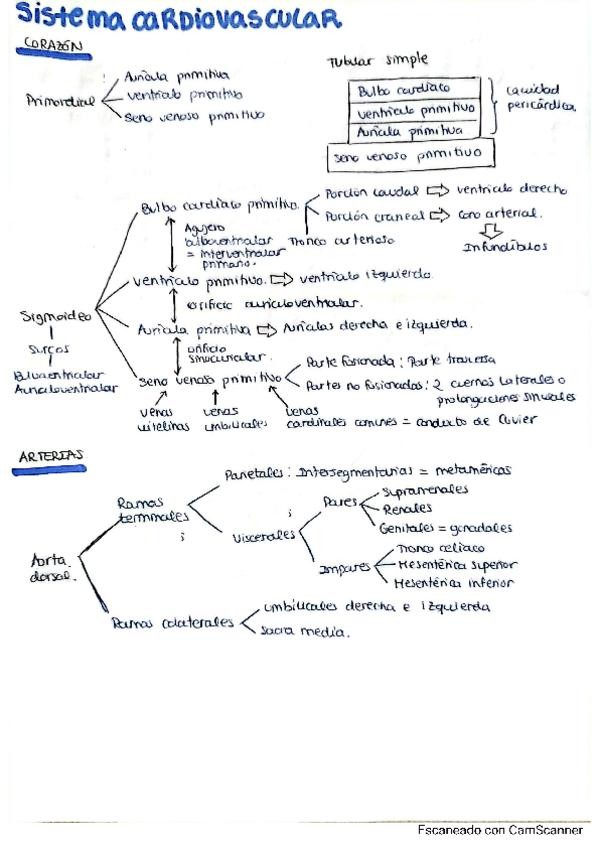 Sistema CARDIOVASCULAR
CORAZÓN
Primordial
Aurícula primitiva
ventrículo primitivo
seno venoso primitivo
Tubular simple
Bulbo cardíaco
ventrículo primitivo
Aurícula primitiva
seno venoso primitivo
cavidad
pericárdica
Sigmoideo
surcos
Bulboventricular
Auriculoventricular
Bulbo cardíaco primitivo.
Porción caudal ⇨ ventrículo derecho
Porción craneal ⇨ cono arterial.
Infundíbulos
Tronco arterioso
Agujero
bulboventricular
= interventricular
primario.
ventrículo primitivo. ⇨ ventrículo izquierdo.
orificio auriculoventricular.
Aurícula primitiva ⇨ Aurículas derecha e izquierda.
orificio
sinuauricular.
seno venoso primitivo
Parte fusionada: Parte transversa
Partes no fusionadas: 2 cuernos laterales o
prolongaciones sinusales
venas
vitelinas
venas
umbilicales
venas
cardinales comunes = conducto de Cuvier
ARTERIAS
Aorta
dorsal.
Ramas
terminales
Parietales: Intersegmentarias = metaméricas
Viscerales
Pares
Suprarrenales
Renales
Genitales = gonadales
Impares
Tronco celíaco
Mesentérica superior
Mesentérica inferior
Ramas colaterales
umbilicales derecha e izquierda
sacra media.
Escaneado con CamScanner